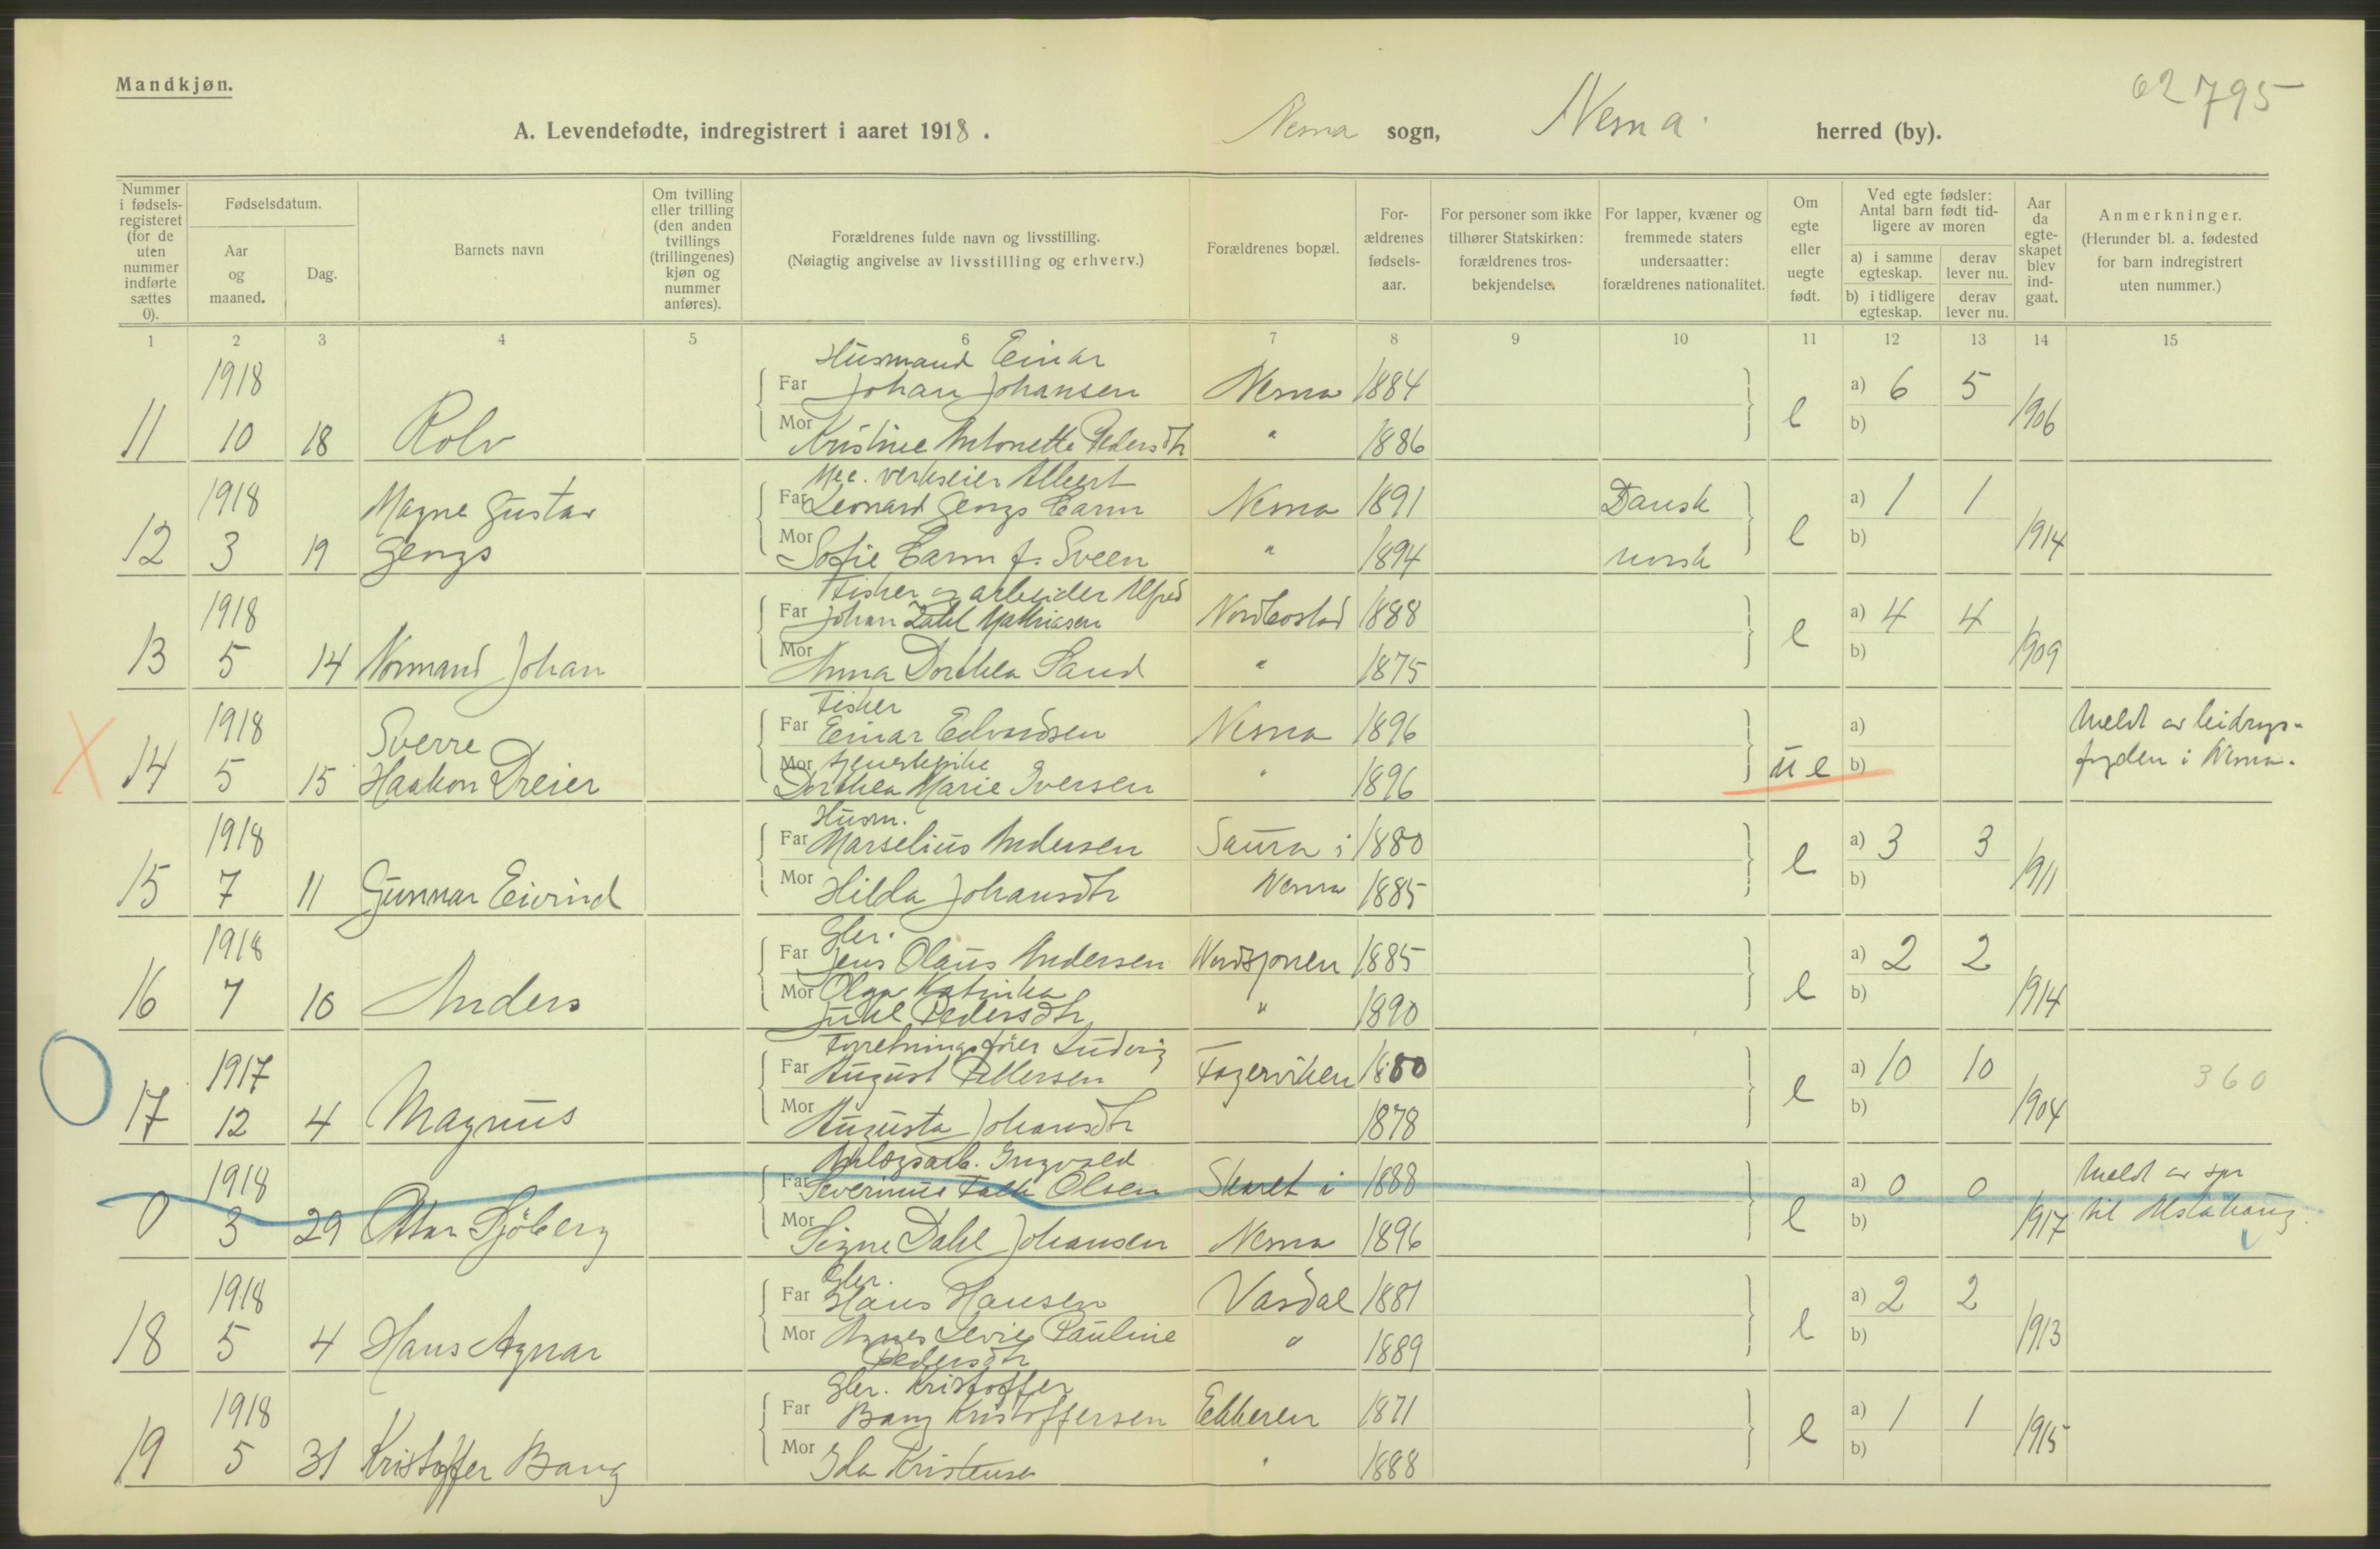 Mandkjøn.
62795
A. Levendefødte, indregistrert i aaret 1918. Nesna sogn, Nesna herred (by).
Nummer i fødsels-registeret (for de uten nummer indførte sættes 0).
Fødselsdatum.
Aar og maaned.
Dag.
Barnets navn
Om tvilling eller trilling (den anden tvillings (trillingenes) kjøn og nummer anføres).
Forældrenes fulde navn og livsstilling.
(Nøiagtig angivelse av livsstilling og erhverv.)
Forældrenes bopæl.
For-ældrenes fødsels-aar.
For personer som ikke tilhører Statskirken: forældrenes tros-bekjendelse.
For lapper, kvæner og fremmede staters undersaatter: forældrenes nationalitet.
Om egte eller uegte født.
Ved egte fødsler: Antal barn født tid-ligere av moren
a) i samme egteskap. derav lever nu.
b) i tidligere egteskap. derav lever nu.
Aar da egte-skapet blev ind-gaat.
Anmerkninger.
(Herunder bl. a. fødested for barn indregistrert uten nummer.)
1 2 3 4 5 6 7 8 9 10 11 12 13 14 15
1918 Husmand Einar
Far Johan Johansen Nesna 1884 a) 6 5
11 10 18 Rolv Mor Kristine Antonette Pedersdtr " 1886 e b) 1906
1918 Magne Gustav Mec. verkseier Albert
Far Leonard Georgs Carm Nesna 1891 Dansk a) 1 1
12 3 19 Georgs Mor Sofie Carm f. Sveen " 1894 norsk e b) 1914
1918 Fisker og arbeider Alfred
Far Johan Zahl Mathiasen 1888 a) 4 4
13 5 14 Normand Johan Mor Anna Dorthea Sand " 1875 e b) 1909
1918 Sverre Fisker
Far Einar Edvardsen Nesna 1896 a) Meldt av
X 14 5 15 Haakon Dreier Mor tjenestepike
Dorthea Marie Iversen " 1896 ue b) i Nesna.
1918 Husm.
Far Marselius Andersen Saura i 1880 a) 3 3
15 7 11 Gunnar Eivind Mor Hilda Johansdtr Nesna 1885 e b) 1911
1918 Gbr.
Far Jens Olaus Andersen 1885 a) 2 2
16 7 10 Anders Mor Olga Katinka
Juhl Pedersdtr " 1890 e b) 1914
1917 Forretningsfører Ludvig
Far August Pettersen Fagerviken 1880 a) 10 10 360
17 12 4 Magnus Mor Augusta Johansdtr 1878 e b) 1904
1918 Anlægsarb. Ingvald
Far Severinus Falch Olsen Skaret i 1888 a) 0 0 Meldt av spr
0 3 29 Ottar Sjöberg Mor Signe Dahl Johansen Nesna 1896 e b) 1917 til Alstahaug.
1918 Gbr.
Far Hans Hansen Vardal 1881 a) 2 2
18 5 4 Hans Agnar Mor Agnes Pauline
Pedersdtr " 1889 e b) 1913
1918 Gbr. Kristoffer
Far Bang Kristoffersen 1871 a) 1 1
19 5 31 Kristoffer Bang Mor Ida Kristensen " 1888 e b) 1915